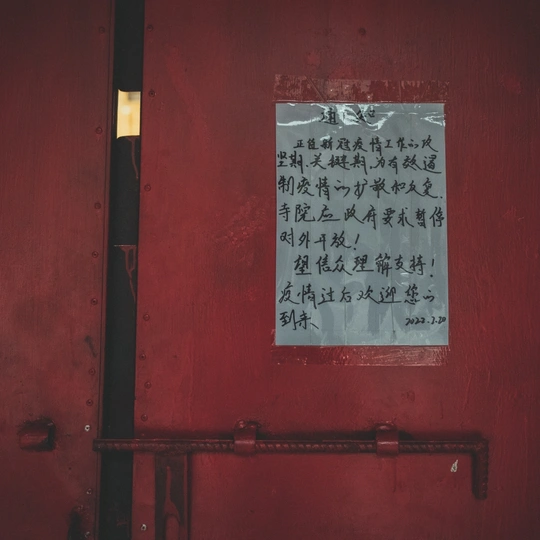 通知
正值新冠疫情工作的攻
坚期、关键期,为有效遏
制疫情的扩散和反复,
寺院应政府要求暂停
对外开放!
望信众理解支持!
疫情过后欢迎您的
到来
2022.3.20